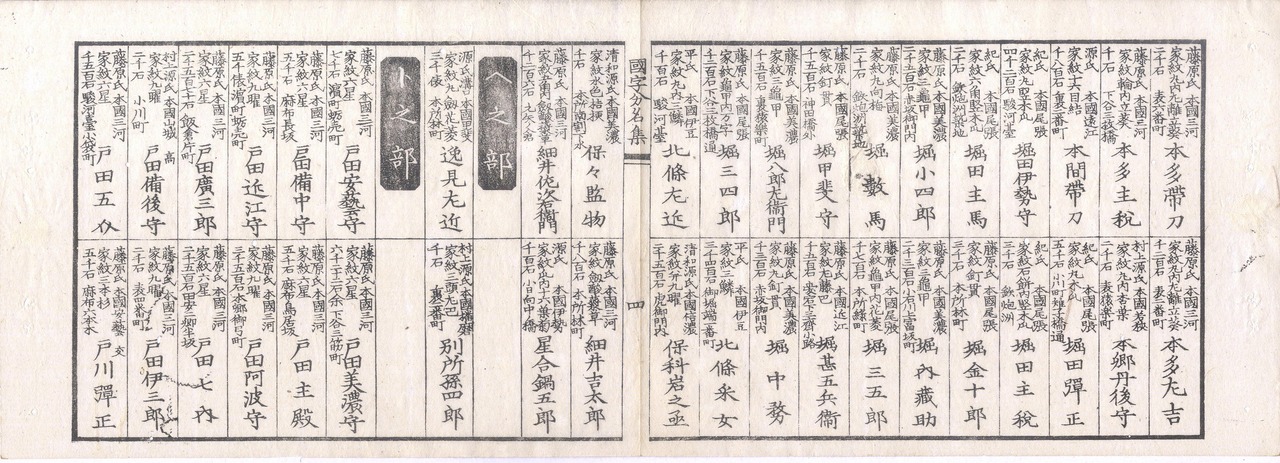 藤原氏 本國三河
家紋丸内尢離立葵
二千石 表六番町
本多帶刀
藤原氏 本國三河
家紋輪内立葵
千石 下谷三枚橋
本多主稅
源氏 本國遠江
家紋十六目結
千八百石 裏二番町
本間帶刀
紀氏 本國尾張
家紋丸竪木瓜
四千二百石 駿河臺
堀田伊勢守
紀氏 本國尾張
家紋六角竪木瓜
二千石 鉄炮洲築地
堀田主馬
藤原氏 本國美濃
家紋三龜甲
二千五百石 赤坂御門内
堀小四郎
家紋向梅
堀數馬
藤原氏 本國尾張
家紋釘貫
千五百石 神田橋外
堀甲斐守
藤原氏 本國美濃
家紋三龜甲
千五百石 裏猿樂町
堀八郎左衞門
家紋龜甲内万字
千三百石 下谷三枚橋通
堀三四郎
平氏 本國伊豆
家紋丸内三鱗
千百石 駿河臺
北條左近
藤原氏 本國三河
家紋丸内尢離立葵
千二百石 表三番町
本多左吉
村上源氏 本國若狹
家紋丸内杏葉
二千石 表猿樂町
本郷丹後守
紀氏 本國尾張
家紋丸木瓜
五千石 小川町雉子橋通
堀田彈正
紀氏 本國尾張
家紋石餅内竪木瓜
三千石 鉄炮洲
堀田主稅
藤原氏 本國尾張
家紋釘貫
三千石 本所林町
堀金十郎
藤原氏 本國美濃
家紋三龜甲
堀内藏助
藤原氏 本國美濃
家紋龜甲内花菱
千七百石 本所綠町
堀三五郎
藤原氏 本國近江
家紋左藤巴
堀甚五兵衞
藤原氏 本國美濃
家紋丸釘貫
千三百石 赤坂御門内
堀中務
平氏 本國伊豆
家紋三鱗
三千四百石 御堀端一番町
北條采女
清和源氏 本國信濃
家紋丸九曜
二千五百石 虎御門内
保科岩之亟
國字分名集
四
清和源氏 本國美濃
家紋水色桔梗
千石 本所割下水
保々監物
藤原氏 本國三河
細井佐次右衞門
ヘ之部
源氏 本國甲斐
家紋丸釼花菱
二千俵 本所林町
逸見左近
ト之部
藤原氏 本國三河
家紋六星
七千石 濱町蛎売町
戸田安藝守
藤原氏 本國三河
家紋六星
五千石 麻布長坂
戸田備中守
藤原氏 本國三河
家紋九曜
五千俵 濱町蛎売町
戸田近江守
藤原氏 本國三河
家紋六星
二千五百七石 飯倉片町
戸田廣三郎
村上源氏 本國山城 高
家紋九曜
二千石 小川町
戸田備後守
藤原氏 本國三河
家紋六星
千五百石 駿河臺小袋町
戸田五介
藤原氏 本國三河
千八百石 本所林町
細井吉太郎
源氏 本國伊勢
家紋丸内十六葉菊
千石 小日向中橋
星合鍋五郎
村上源氏 本國播磨
家紋三頭左巴
千石 裏二番町
別所孫四郎
藤原氏 本國三河
家紋六星
戸田美濃守
藤原氏 本國三河
家紋九曜
三千五百石 本郷御弓町
戸田阿波守
藤原氏 本國三河
家紋六星
五千石 麻布鳥居坂
戸田主殿
藤原氏 本國三河
家紋六星
戸田七内
藤原氏 本國三河
家紋九曜
二千石 表四番町
戸田伊三郎
藤原氏 本國安藝 支
家紋三本杉
五千石 麻布六本木
戸川彈正